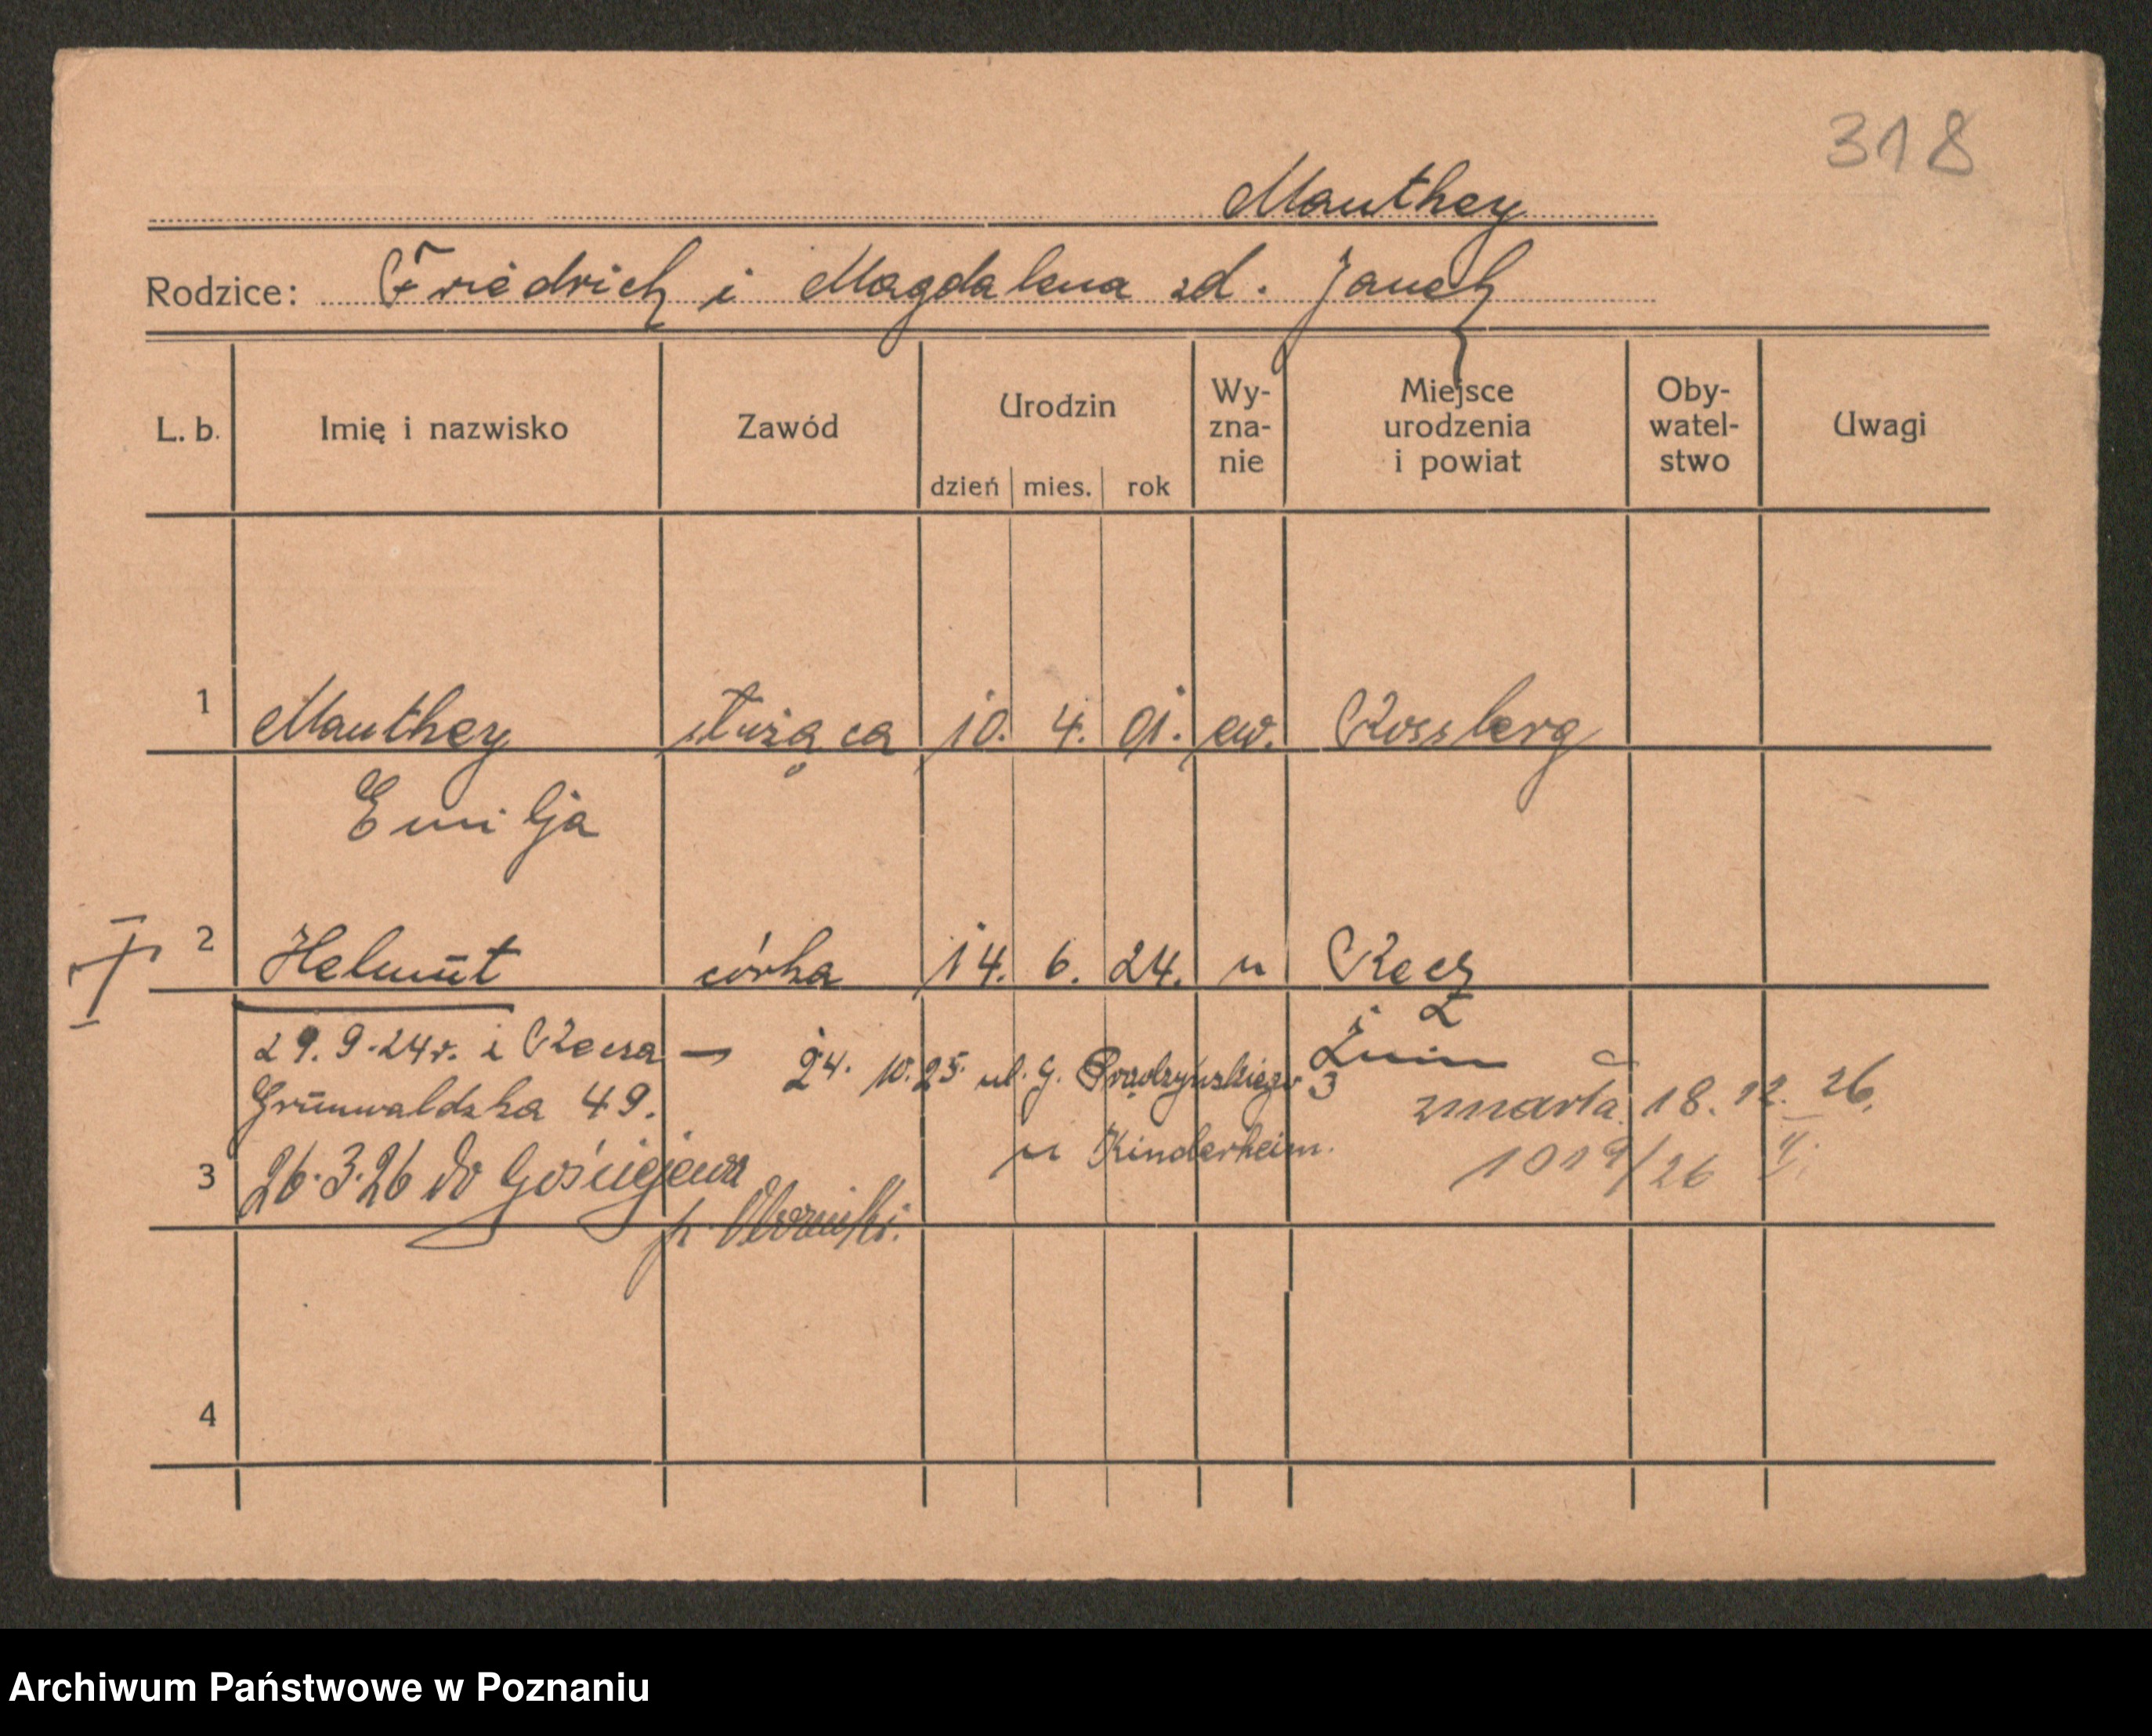 318
Manthey
Rodzice: Friedrich i Magdalena zd. Janch
L. b. Imię i nazwisko Zawód Urodzin dzień mies. rok Wy-zna-nie Miejsce urodzenia i powiat Oby-watel-stwo Uwagi
1 Manthey służąca 10. 4. 01. ew. Rossberg
Emilja
2 Helmut córka 14. 6. 24. " Recz
p. Żnin
29.9.24r. z Recza — 24. 10. 25. ul. G. Prądzyńskiego 3
Grunwaldzka 49. zmarła 18. 12. 26.
u Kinderheim. 1019/26
3 26.3.26 do Gościejewa
p. Obornicki.
4
Archiwum Państwowe w Poznaniu